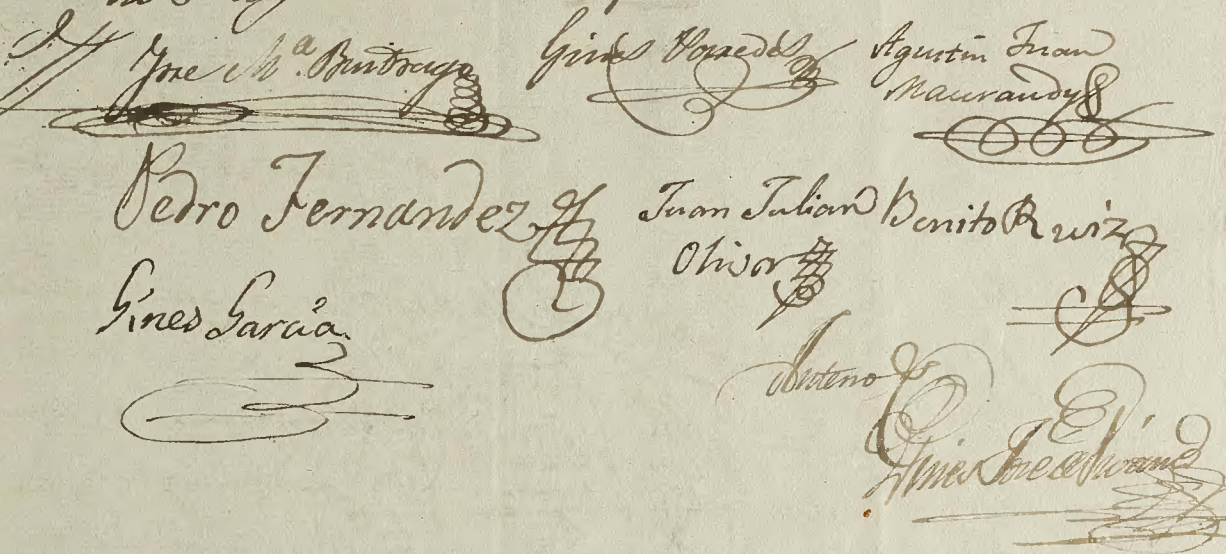 Jose M.ª Buitrago
Gines Paredes
Agustin Juan
Maurandy
Pedro Fernandez
Juan Julian
Oliver
Benito Ruiz
Gines Garcia
Gines Jose de